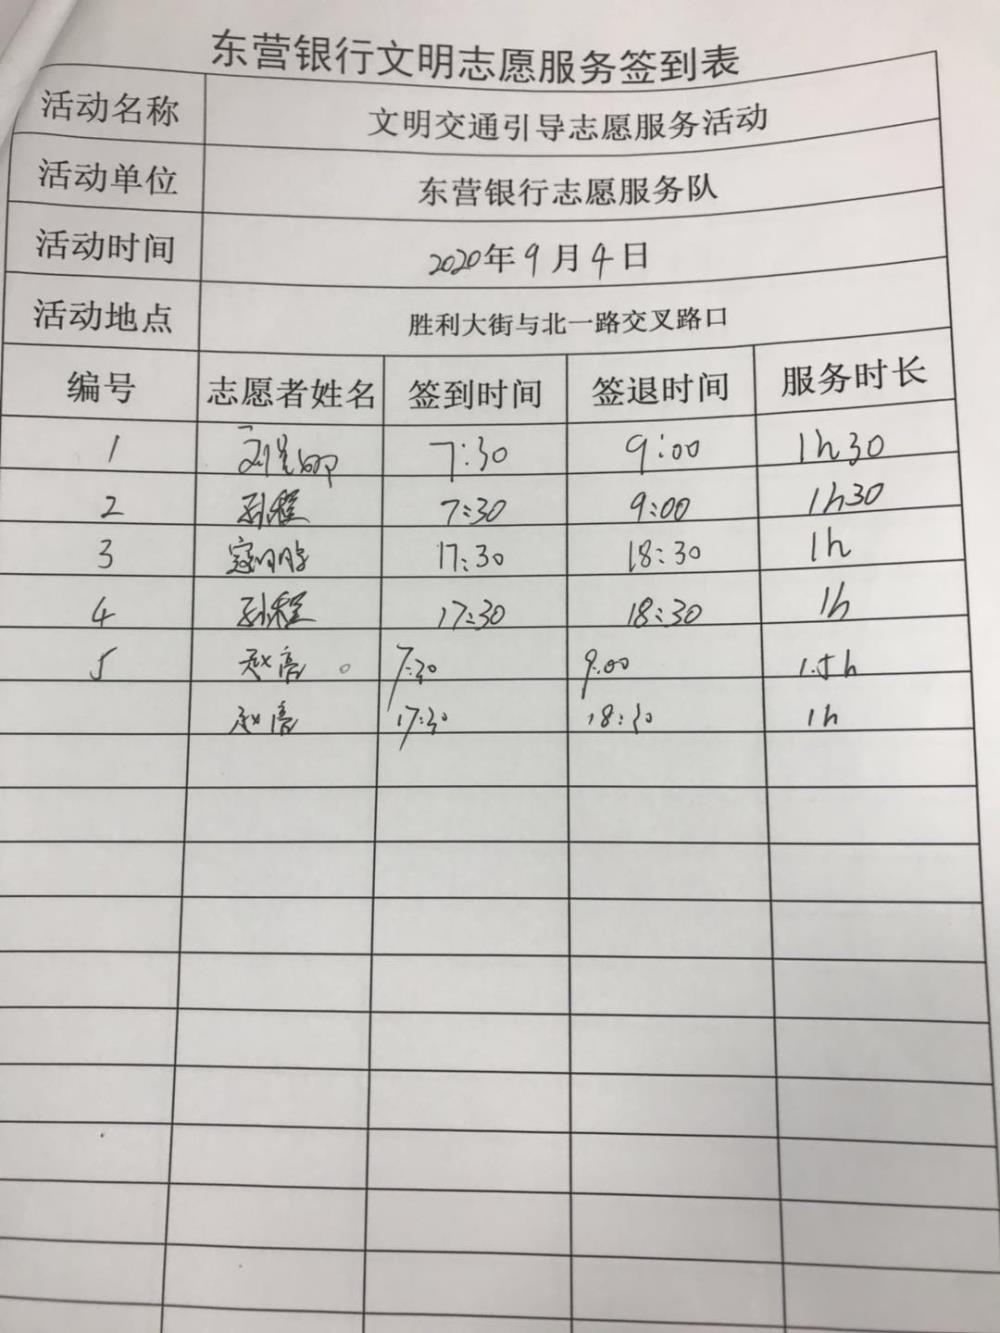 东营银行文明志愿服务签到表
活动名称 文明交通引导志愿服务活动
活动单位 东营银行志愿服务队
活动时间 2020年9月4日
活动地点 胜利大街与北一路交叉路口
编号 志愿者姓名 签到时间 签退时间 服务时长
1 7:30 9:00 1h30
2 孙程 7:30 9:00 1h30
3 17:30 18:30 1h
4 孙程 17:30 18:30 1h
5 赵亮 7:30 9:00 1.5h
赵亮 17:30 18:30 1h